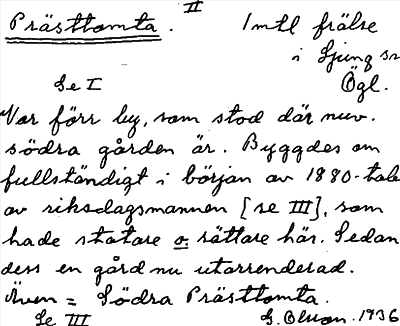 II
Prästtomta. Intl frälse
i Ljung sn
Ögl.
Se I
Var förr by, som stod där nuv.
södra gården är. Byggdes om
fullständigt i början av 1880-tale
av riksdagsmannen [se III], som
hade statare o. rättare här. Sedan
dess en gård nu utarrenderad.
Även = Södra Prästtomta.
Se III G. Olsson. 1936